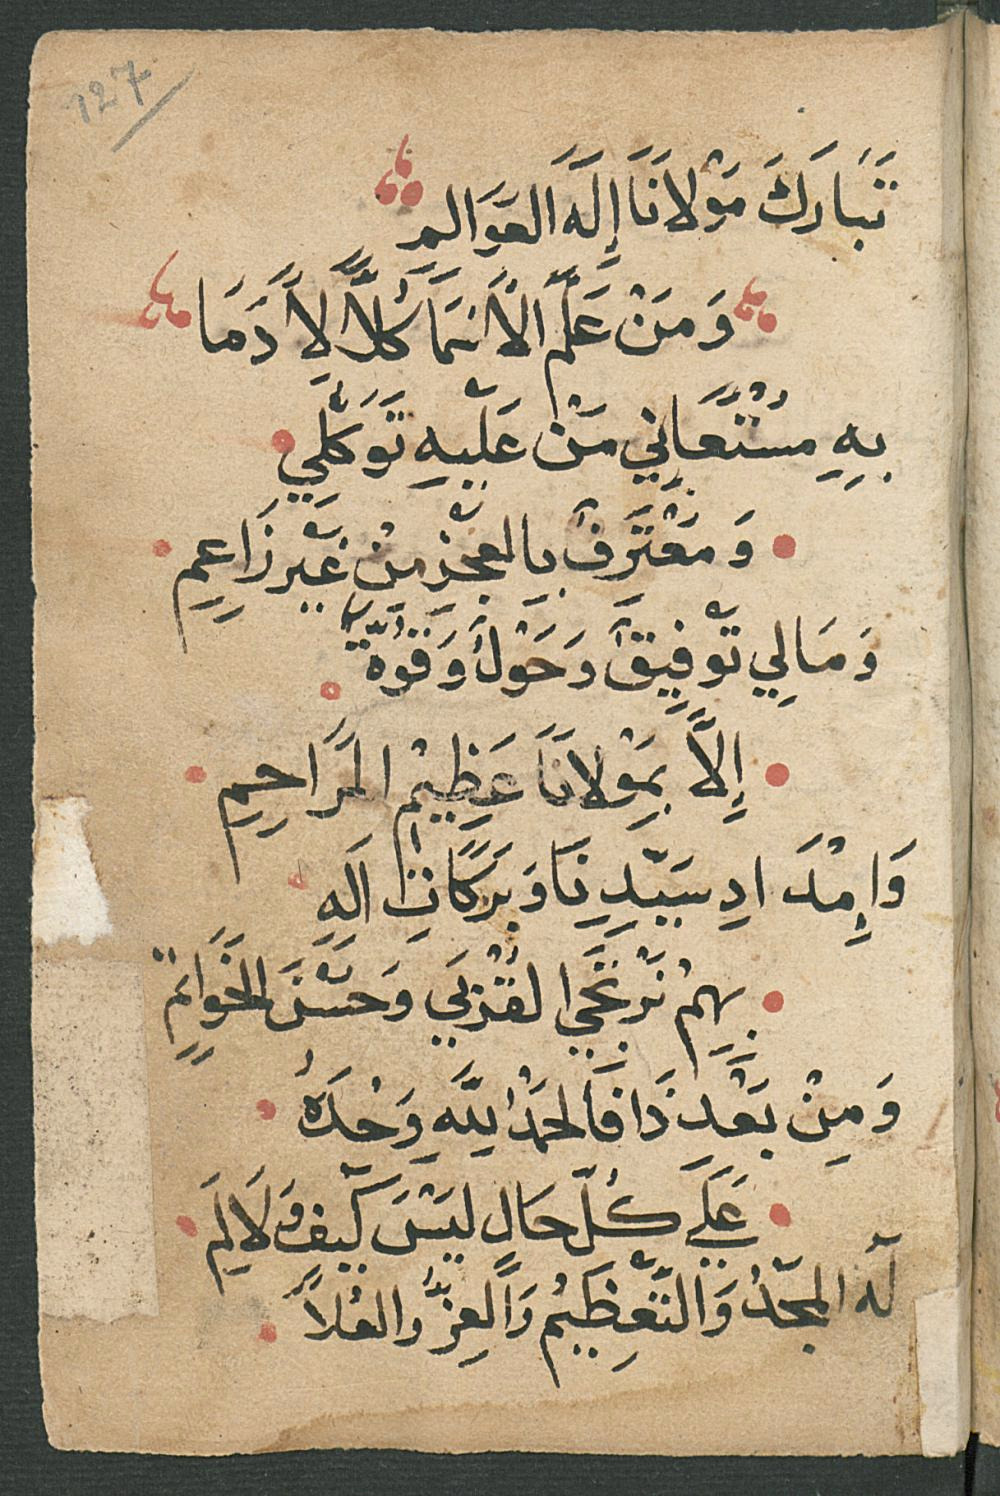 127
تَبَارَكَ مَوْلَانَا إِلَهَ العَوَالِمِ
وَمَنْ عَلَّمَ الأَسْمَا كُلًّا لِآدَمَا
بِهِ مُسْتَعَانِي مَنْ عَلَيْهِ تَوَكُّلِي
وَمُعْتَرِفٌ بِالعَجْزِ مِنْ غَيْرِ زَاعِمِ
وَمَالِي تَوْفِيقٌ وَحَوْلٌ وَقُوَّةٌ
إِلَّا بِمَوْلَانَا عَظِيمِ المَرَاحِمِ
وَإِمْدَادِ سَيِّدِنَا وَبَرَكَاتِ الِهِ
بِهِمْ نَرْتَجِي القُرْبَى وَحُسْنَ الخَوَاتِمِ
وَمِنْ بَعْدِ ذَا فَالحَمْدُ لِلَّهِ وَحْدَهُ
عَلَى كُلِّ حَالٍ لَيْسَ كَيْفَ وَلَا لِمَ
لَهُ المَجْدُ وَالتَّعْظِيمُ وَالعِزُّ وَالعُلَا